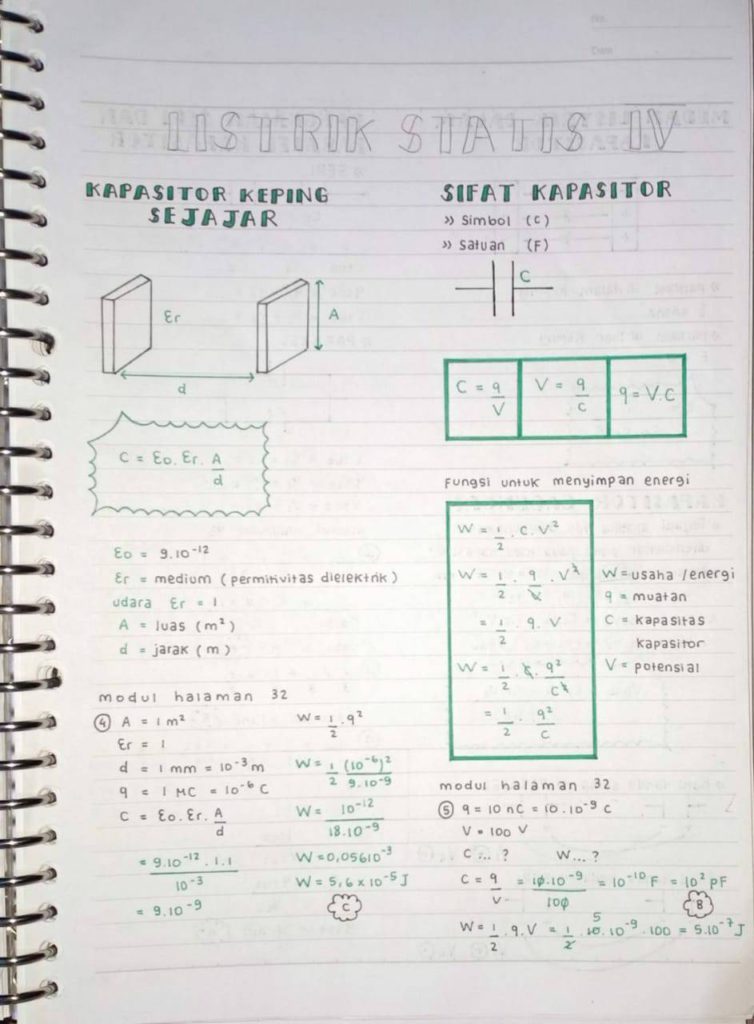 LISTRIK STATIS IV
KAPASITOR KEPING
SEJAJAR
εr
A
d
C = εo. εr. A/d
εo = 9.10⁻¹²
εr = medium (permitivitas dielektrik)
udara εr = 1
A = luas (m²)
d = jarak (m)
modul halaman 32
④ A = 1 m²
εr = 1
d = 1 mm = 10⁻³ m
q = 1 MC = 10⁻⁶ C
C = εo. εr. A/d
= 9.10⁻¹² . 1.1 / 10⁻³
= 9.10⁻⁹
W = 1/2 . q²
W = 1/2 (10⁻⁶)² / 9.10⁻⁹
W = 10⁻¹² / 18.10⁻⁹
W = 0,05610⁻³
W = 5,6 x 10⁻⁵ J
C
SIFAT KAPASITOR
» Simbol (C)
» Satuan (F)
C
C = q/V
V = q/C
q = V.C
Fungsi untuk menyimpan energi
W = 1/2 . C. V²
W = 1/2 . q/V . V²
= 1/2 . q. V
W = 1/2 . C . q²/C²
= 1/2 . q²/C
W = usaha / energi
q = muatan
C = kapasitas
kapasitor
V = potensial
modul halaman 32
⑤ q = 10 nC = 10.10⁻⁹ C
V = 100 V
C ... ? W... ?
C = q/V = 10.10⁻⁹ / 100 = 10⁻¹⁰ F = 10² PF
B
W = 1/2 . q. V = 1/2 . 10. 10⁻⁹ . 100 = 5.10⁻⁷ J
5